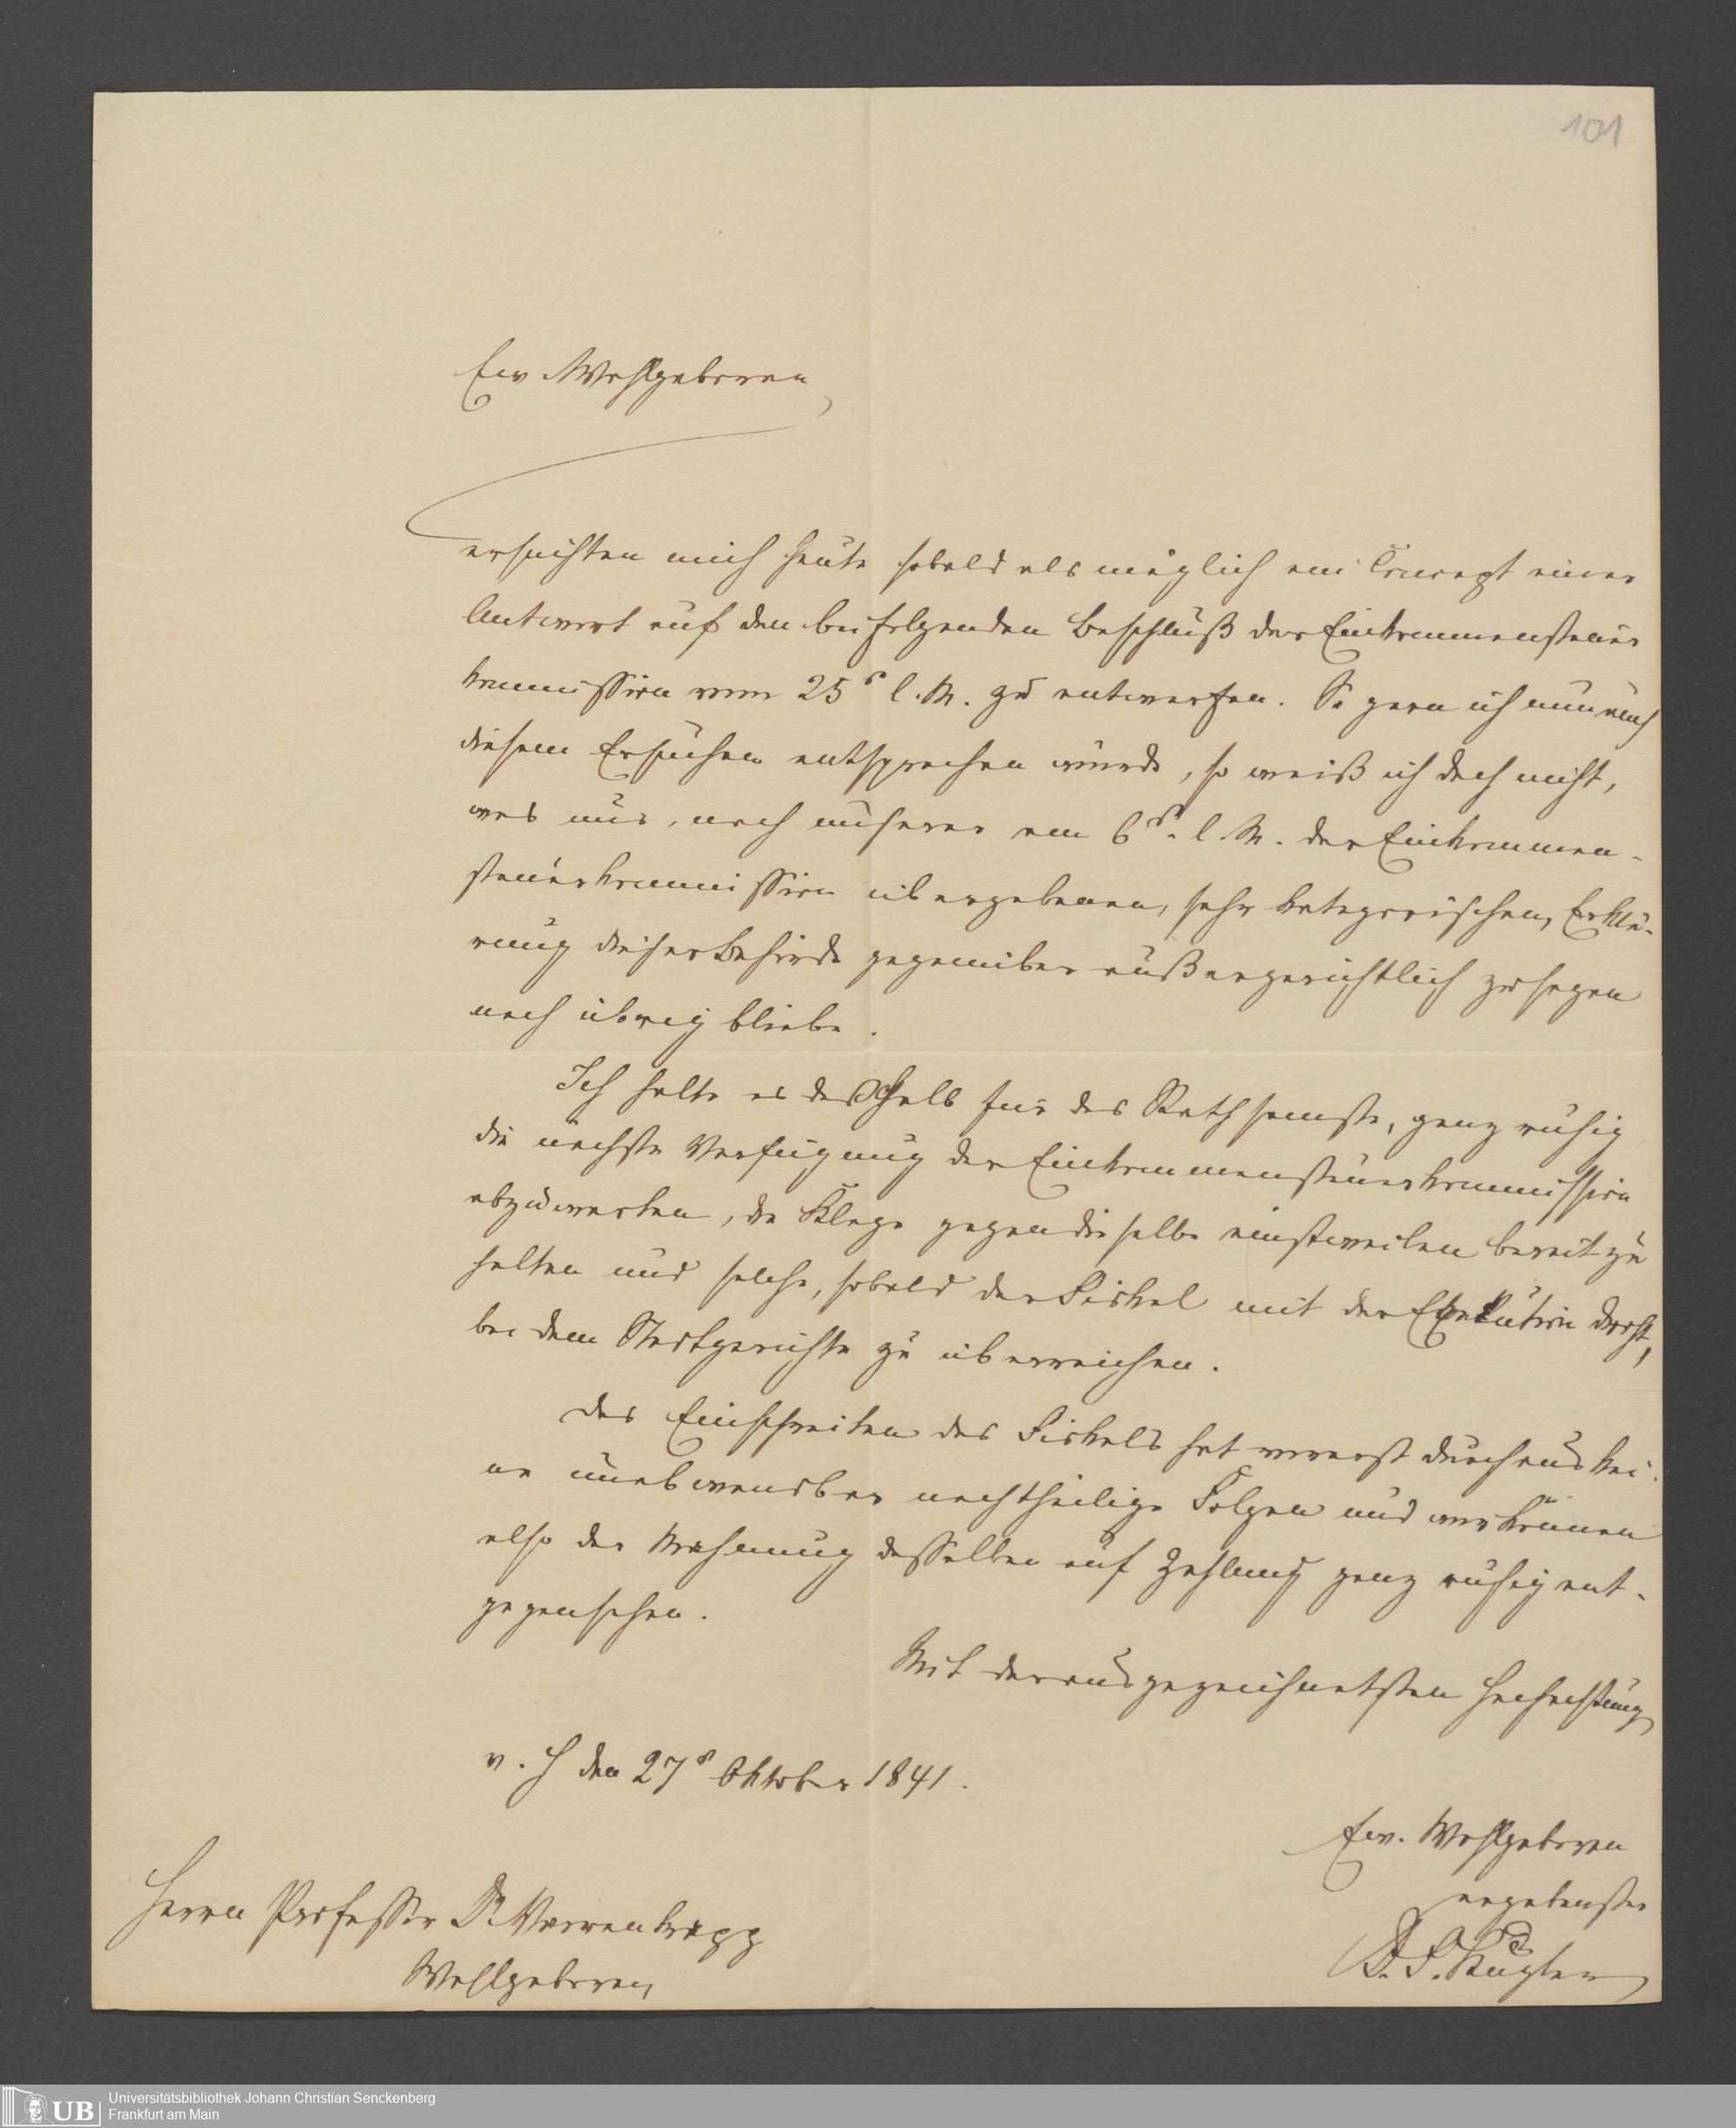 101
Ew. Wohlgeboren
ersuchten mich heute sobald als möglich ein Concept einer
Antwort auf den beifolgenden Beschluß der Einkommensteuer
kommission vom 25ⁿ l. M. zu entwerfen. So gern ich nun auch
diesem Ersuchen entsprechen würde, so weiß ich doch nicht,
was uns, nach unserer am 6ⁿ l. M. der Einkommen-
steuerkommission übergebenen, sehr kategorischen, Erklä-
rung dieser Behörde gegenüber außergerichtlich zu sagen
noch übrig bliebe.
Ich halte es deshalb für das Rathsamste, ganz ruhig
die nächste Verfügung der Einkommensteuerkommission
abzuwarten, die Klage gegen dieselbe einstweilen bereit zu
halten und solche, sobald der Fiskal mit der Exekution droht,
bei dem Stadtgerichte zu überreichen.
Das Einschreiten des Fiskals hat vorerst durchaus kei-
ne unabwendbar nachtheilige Folgen und wir können
also der Mahnung desselben auf Zahlung ganz ruhig ent-
gegensehen.
Mit der ausgezeichnetsten Hochachtung
v. H den 27ⁿ Oktober 1841.
Ew. Wohlgeboren
ergebenster
Dr. Kugler
Herrn Professor Dr Varrentrapp
Wohlgeboren
UB Universitätsbibliothek Johann Christian Senckenberg
Frankfurt am Main